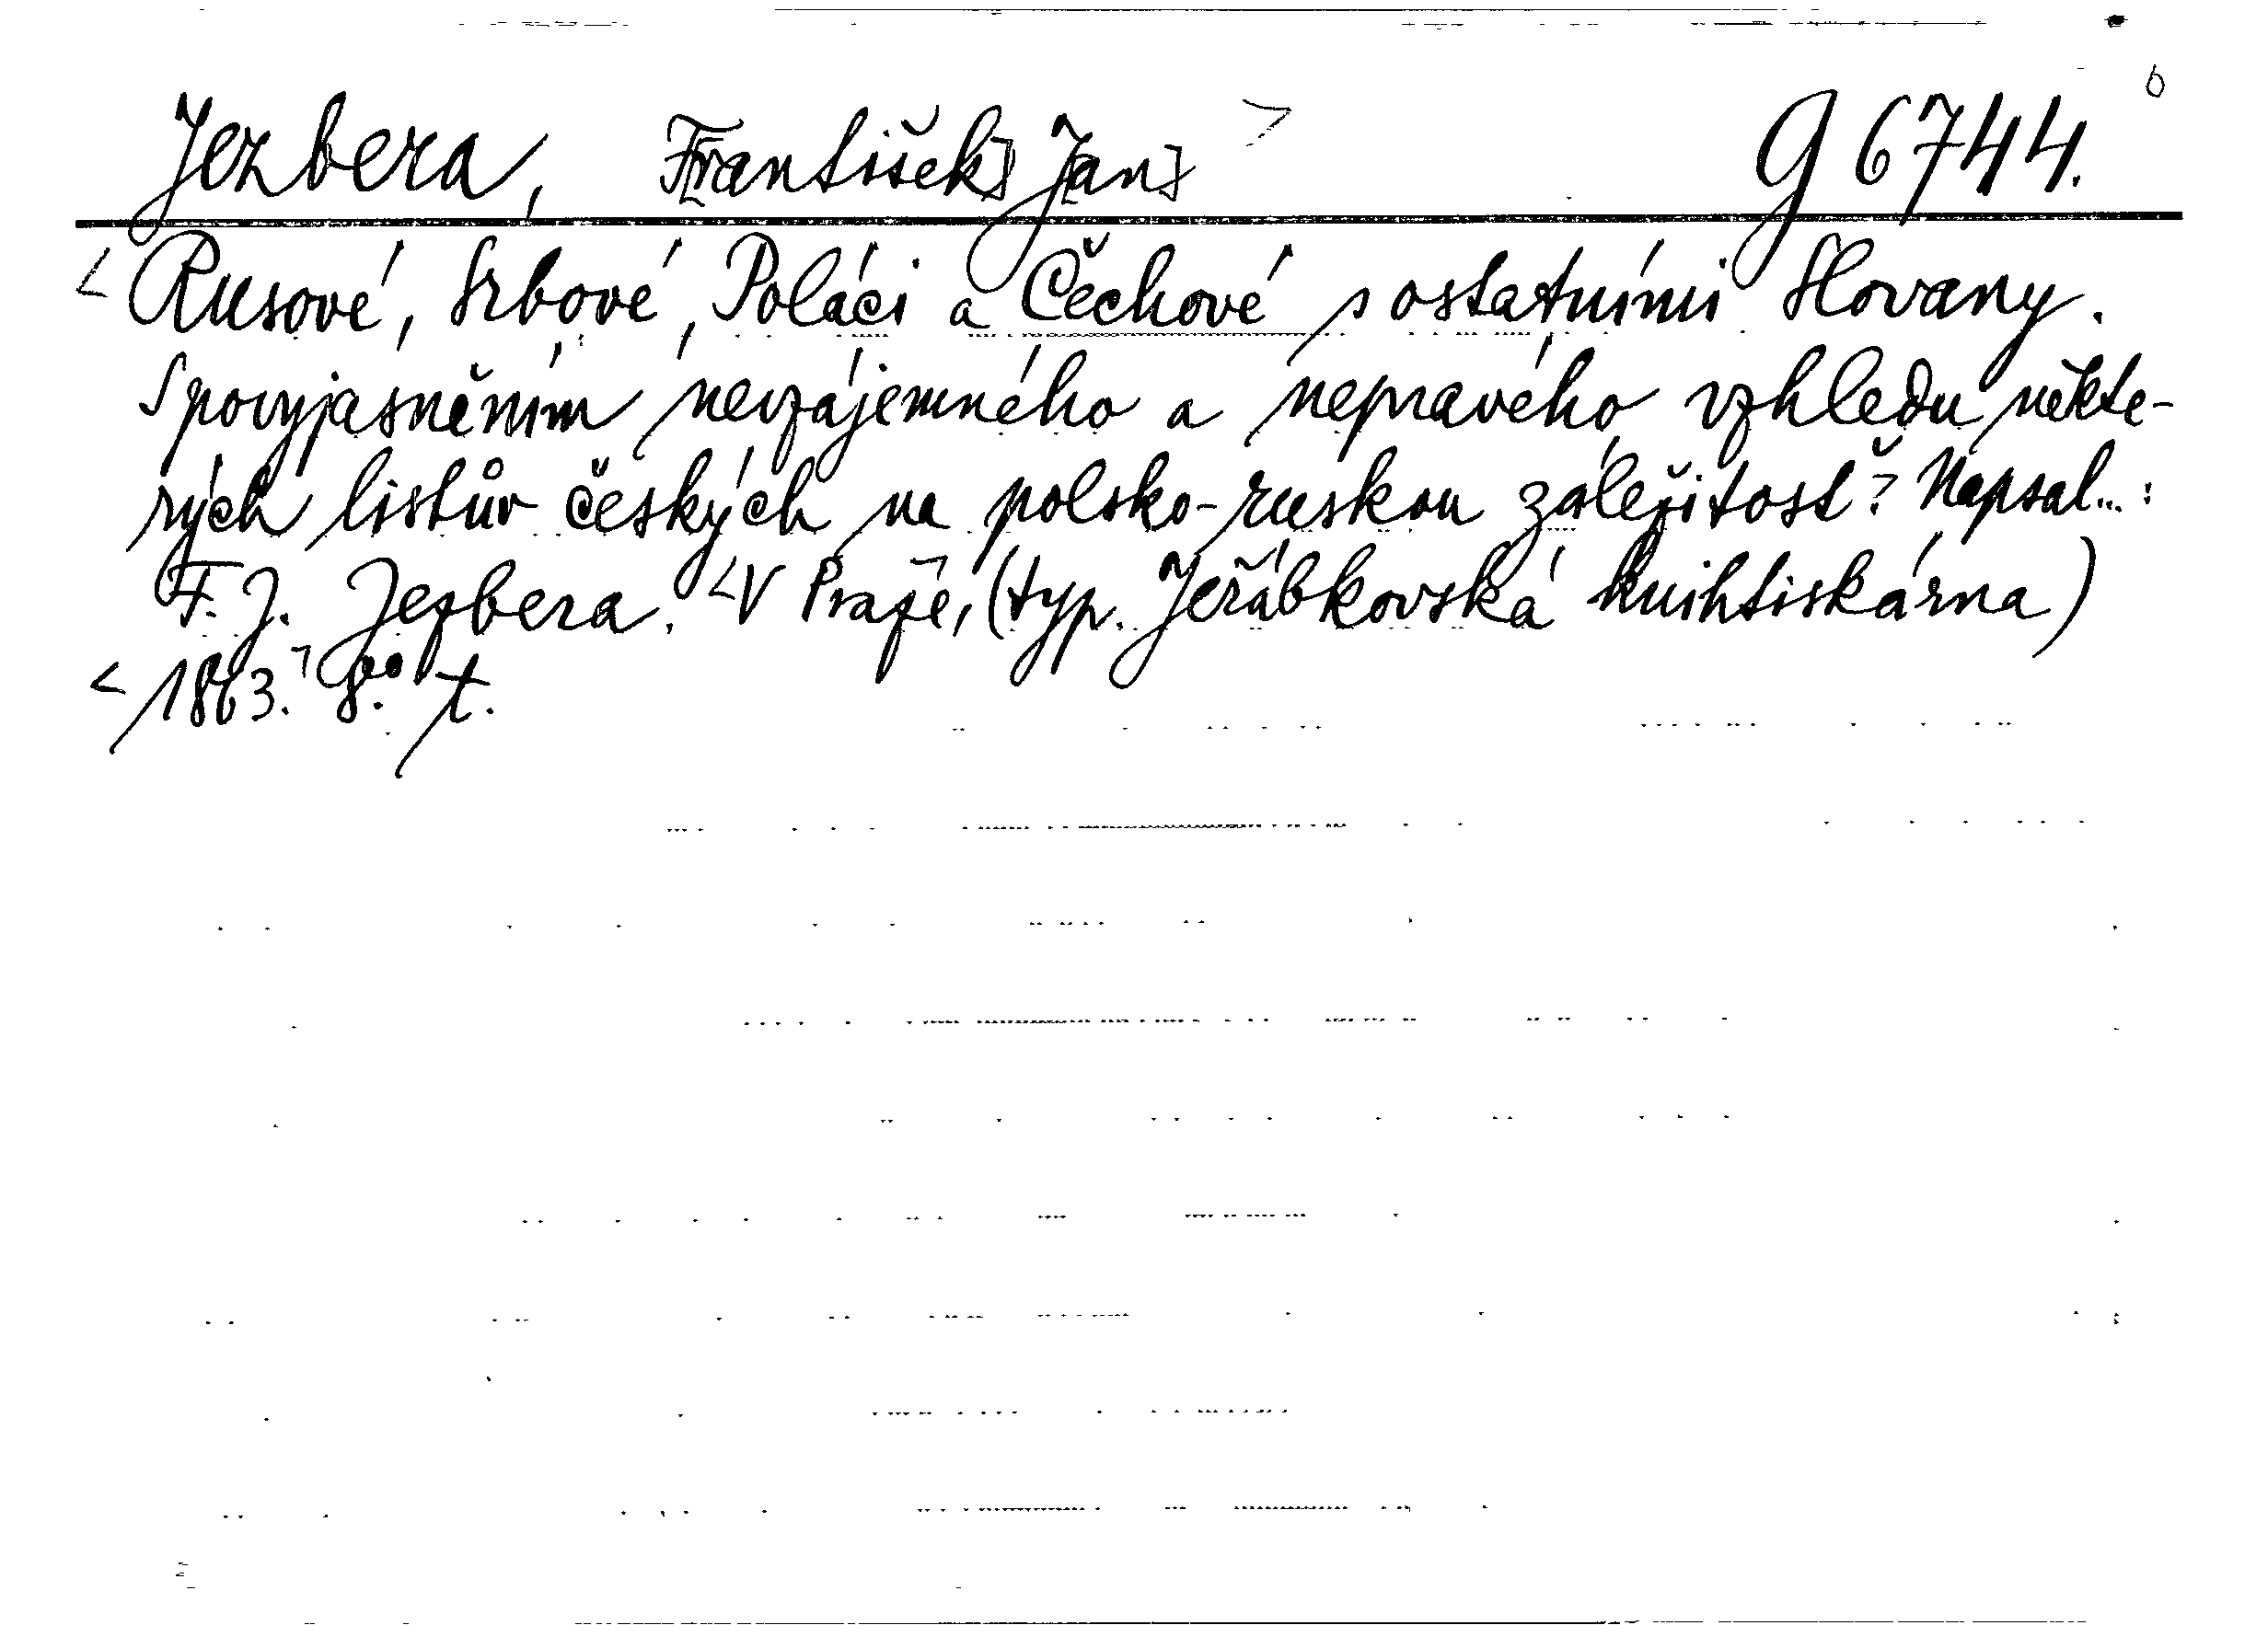 Jezbera, F[rantišek] J[an] g 6744.
Rusové, Srbové, Poláci a Čechové s ostatními Slovany.
S povyjasněním nevzájemného a nepravého vzhledu někte-
rých listův českých na polsko-ruskou záležitosť. Napsal...:
F. J. Jezbera. V Praze, (typ. Jeřábkovská knihtiskárna)
1863. 8.° t.